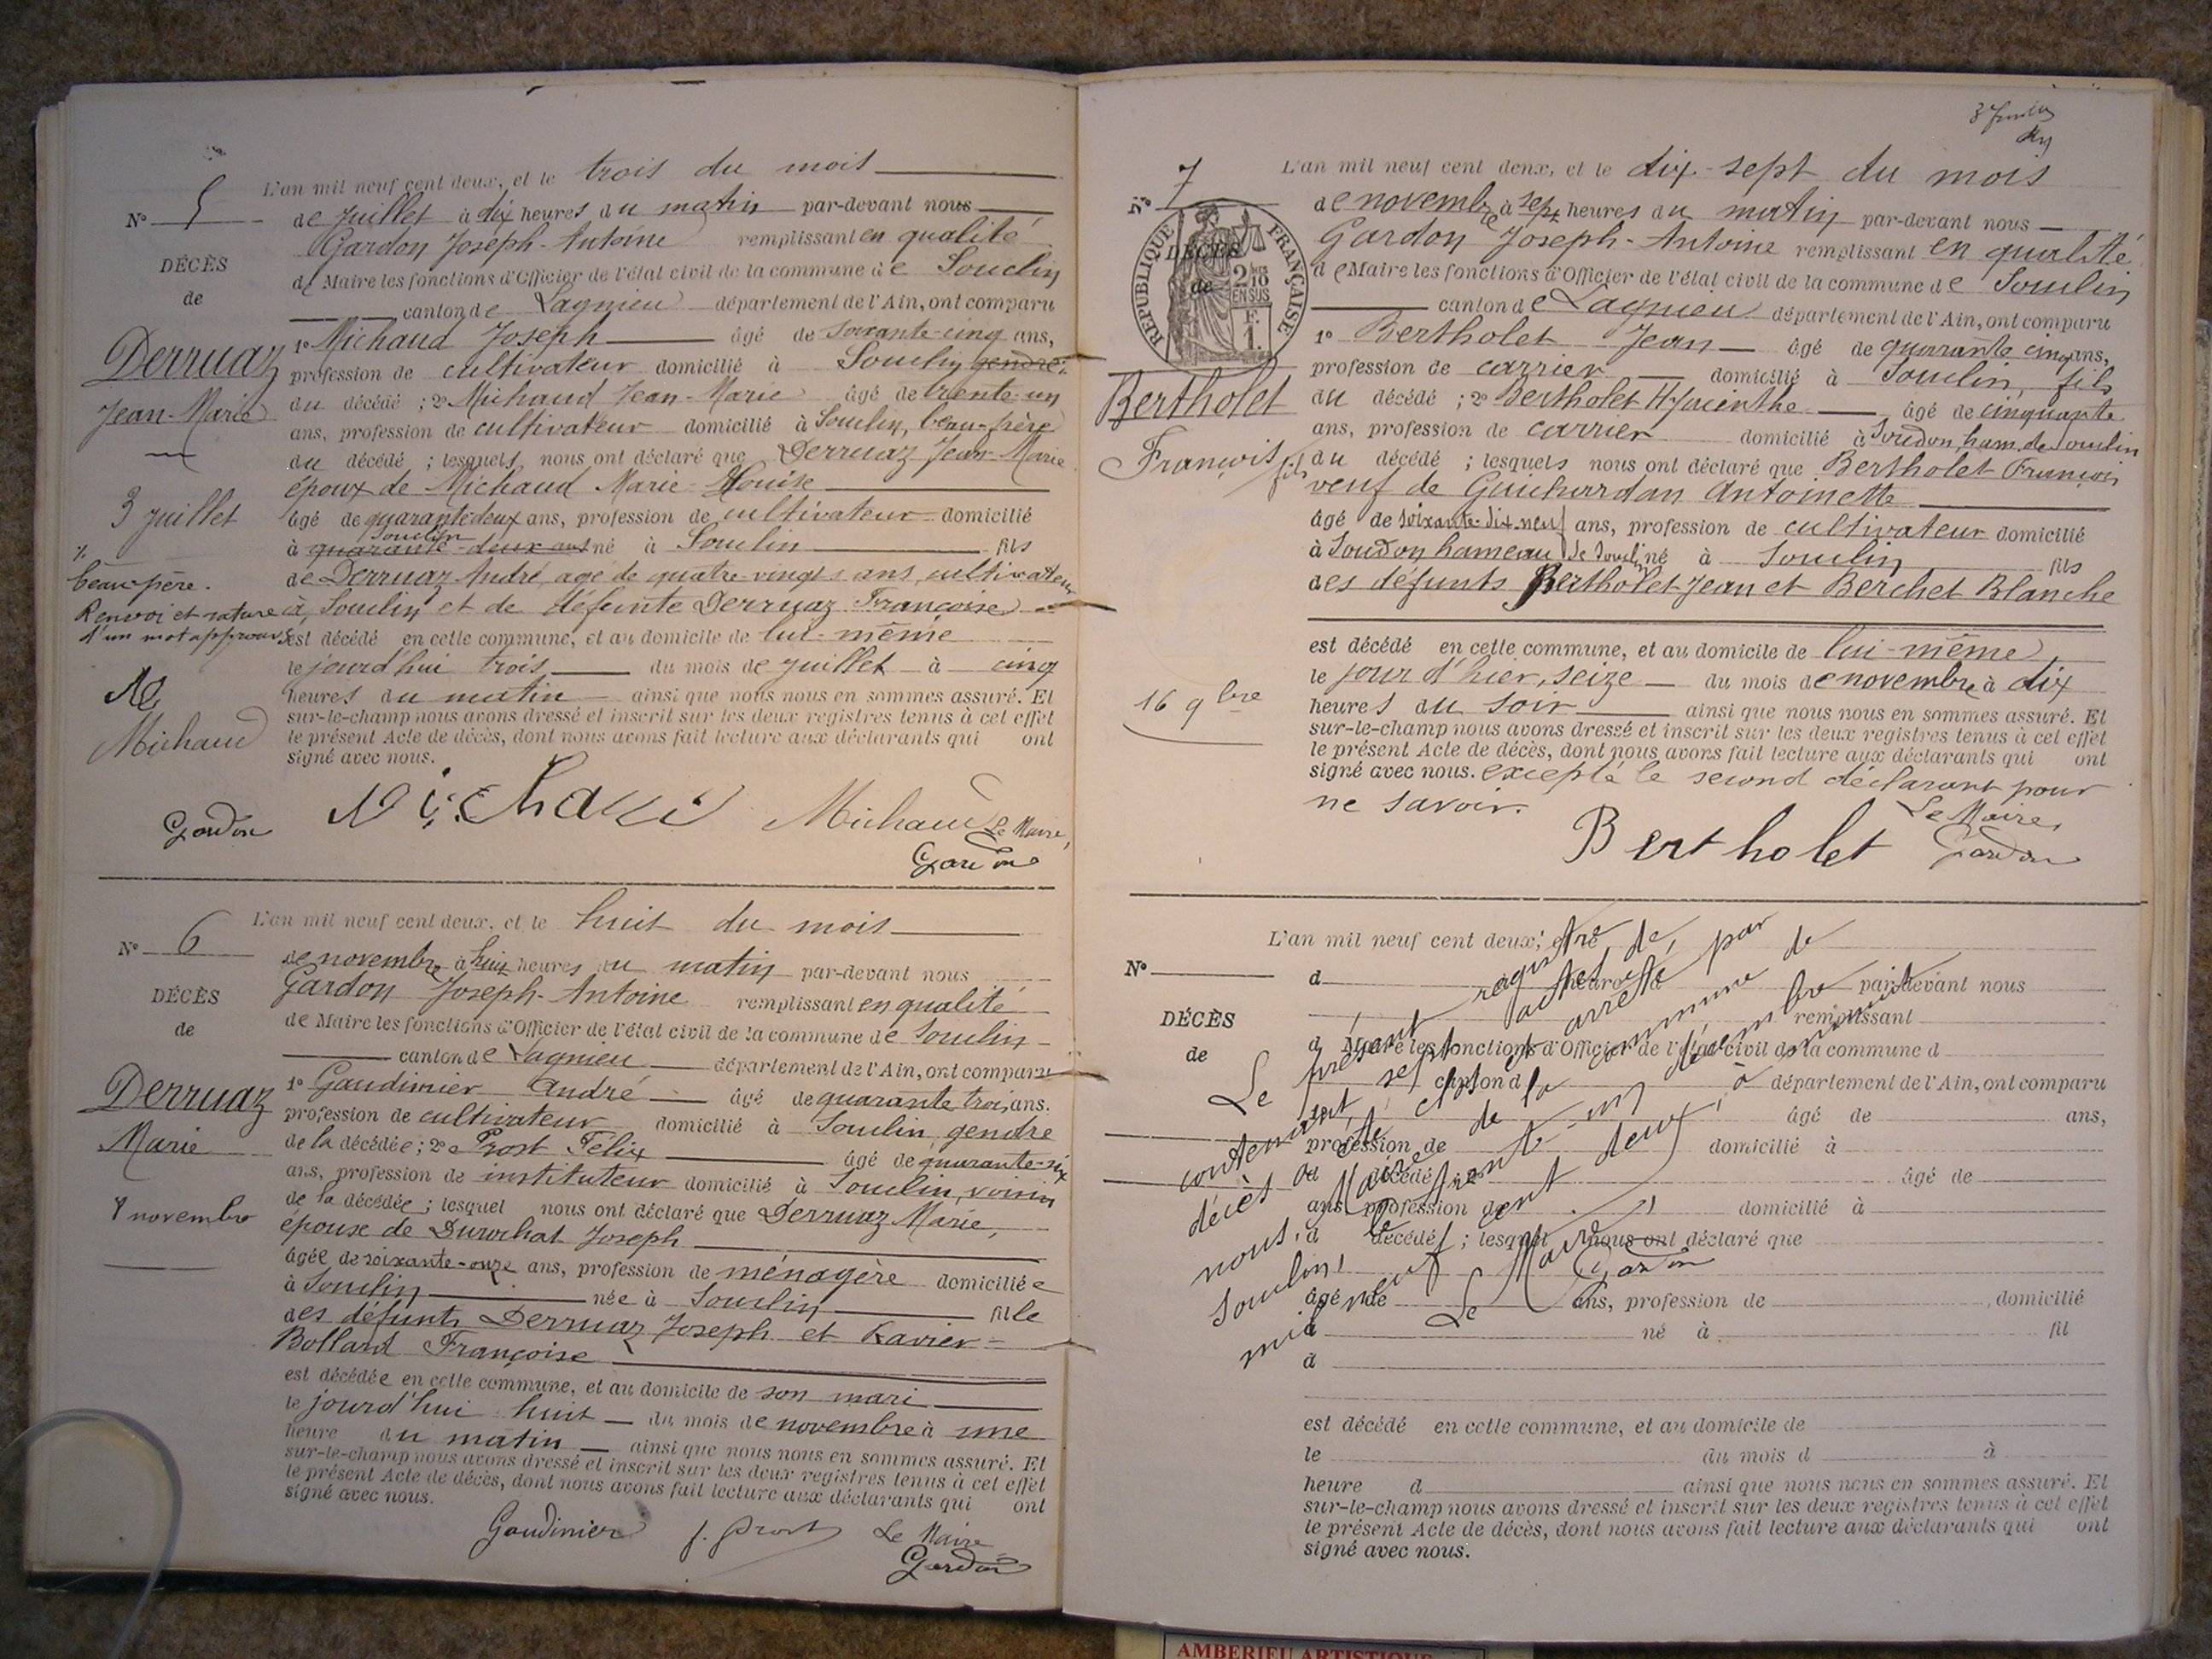 N° 5
DÉCÈS
de
Derruaz
Jean-Marie
3 juillet
beau-père.
Renvoi et rature
d'un mot approuvés
M
Michaud
Gardon
L'an mil neuf cent deux, et le trois du mois
de juillet à dix heures du matin par-devant nous
Gardon Joseph-Antoine remplissant en qualité
de Maire les fonctions d'Officier de l'état civil de la commune de Souclin
canton de Lagnieu département de l'Ain, ont comparu
1° Michaud Joseph âgé de soixante-cinq ans,
profession de cultivateur domicilié à Souclin gendre
du décédé ; 2° Michaud Jean-Marie âgé de trente-un
ans, profession de cultivateur domicilié à Souclin, beau-frère
du décédé ; lesquels nous ont déclaré que Derruaz Jean-Marie
époux de Michaud Marie-Louise
âgé de quarante-deux ans, profession de cultivateur domicilié
Souclin
à quarante-deux ans né à Souclin fils
de Derruaz André, âgé de quatre-vingts ans, cultivateur
à Souclin et de défunte Derruaz Françoise
est décédé en cette commune, et au domicile de lui-même
le jourd'hui trois du mois de juillet à cinq
heures du matin ainsi que nous nous en sommes assuré. Et
sur-le-champ nous avons dressé et inscrit sur les deux registres tenus à cet effet
le présent Acte de décès, dont nous avons fait lecture aux déclarants qui ont
signé avec nous.
Michaud Michaud Le Maire,
Gardon
N° 6
DÉCÈS
de
Derruaz
Marie
8 novembre
L'an mil neuf cent deux, et le huit du mois
de novembre à huit heures du matin par-devant nous
Gardon Joseph-Antoine remplissant en qualité
de Maire les fonctions d'Officier de l'état civil de la commune de Souclin
canton de Lagnieu département de l'Ain, ont comparu
1° Gaudinier André âgé de quarante trois ans.
profession de cultivateur domicilié à Souclin, gendre
de la décédée ; 2° Prost Félix âgé de quarante-six
ans, profession de instituteur domicilié à Souclin, voisin
de la décédée ; lesquel nous ont déclaré que Derruaz Marie,
épouse de Durochat Joseph
âgée de soixante-onze ans, profession de ménagère domiciliée
à Souclin née à Souclin fille
des défunts Derruaz Joseph et Ravier=
Bollard Françoise
est décédée en cette commune, et au domicile de son mari
le jourd'hui huit du mois de novembre à une
heure du matin ainsi que nous nous en sommes assuré. Et
sur-le-champ nous avons dressé et inscrit sur les deux registres tenus à cet effet
le présent Acte de décès, dont nous avons fait lecture aux déclarants qui ont
signé avec nous.
Gaudinier f. Prost Le Maire
Gardon
N° 7
DÉCÈS
de
RÉPUBLIQUE FRANÇAISE
2/10
EN SUS
F.
1.
Bertholet
François, fils
16 9bre
L'an mil neuf cent deux, et le dix-sept du mois
de novembre à sept heures du matin par-devant nous
Gardon Joseph-Antoine remplissant en qualité
de Maire les fonctions d'Officier de l'état civil de la commune de Souclin
canton de Lagnieu département de l'Ain, ont comparu
1° Bertholet Jean âgé de quarante cinq ans,
profession de carrier domicilié à Souclin, fils
du décédé ; 2° Bertholet Hyacinthe âgé de cinquante
ans, profession de carrier domicilié à Soudon, ham. de Souclin
du décédé ; lesquels nous ont déclaré que Bertholet François
veuf de Gauchardan Antoinette
âgé de soixante-dix-neuf ans, profession de cultivateur domicilié
à Soudon hameau de Souclin né à Souclin fils
des défunts Bertholet Jean et Berchet Blanche
est décédé en cette commune, et au domicile de lui-même,
le jour d'hier, seize du mois de novembre à dix
heures du soir ainsi que nous nous en sommes assuré. Et
sur-le-champ nous avons dressé et inscrit sur les deux registres tenus à cet effet
le présent Acte de décès, dont nous avons fait lecture aux déclarants qui ont
signé avec nous. excepté le second déclarant pour
ne savoir.
Le Maire,
Bertholet Gardon
N°
DÉCÈS
de
L'an mil neuf cent deux, et le
d heure d par-devant nous
remplissant
d Maire les fonctions d'Officier de l'état civil de la commune d
canton d département de l'Ain, ont comparu
1° âgé de ans,
profession de domicilié à
d décédé âgé de
ans, profession de domicilié à
d décédé ; lesquel nous ont déclaré que
âgé de ans, profession de domicilié
à né à fil
d
est décédé en cette commune, et au domicile de
le du mois d à
heure d ainsi que nous nous en sommes assuré. Et
sur-le-champ nous avons dressé et inscrit sur les deux registres tenus à cet effet
le présent Acte de décès, dont nous avons fait lecture aux déclarants qui ont
signé avec nous.
Le présent registre
contenant sept actes de
décès a été clos et arrêté par
nous, Maire de la commune de
Souclin, le trente-un décembre
mil neuf cent deux, à minuit
Le Maire
Gardon
AMBERIEU ARTISTIQUE